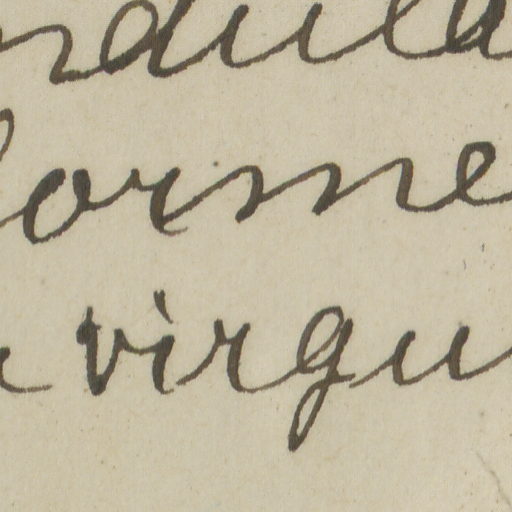 ndula
orme
virgu